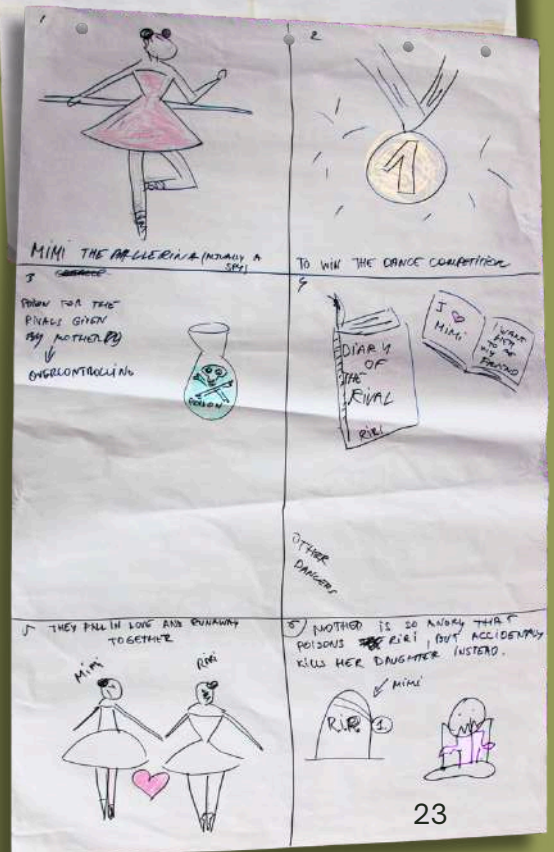 1
MIMI THE BALLERINA (ACTUALLY A
SPY)
2
1
TO WIN THE DANCE COMPETITION
3
POISON FOR THE
RIVALS GIVEN
BY MOTHER
OVERCONTROLLING
POISON
4
DIARY
OF
THE
RIVAL
RIRI
I ♥
MIMI
I WANT
HER
TO BE
MY
FRIEND
OTHER
DANCERS
5 THEY FALL IN LOVE AND RUNAWAY
TOGETHER
MIMI
RIRI
6 MOTHER IS SO ANGRY THAT
POISONS RIRI, BUT ACCIDENTALY
KILLS HER DAUGHTER INSTEAD.
MIMI
R.I.P.
1.
23